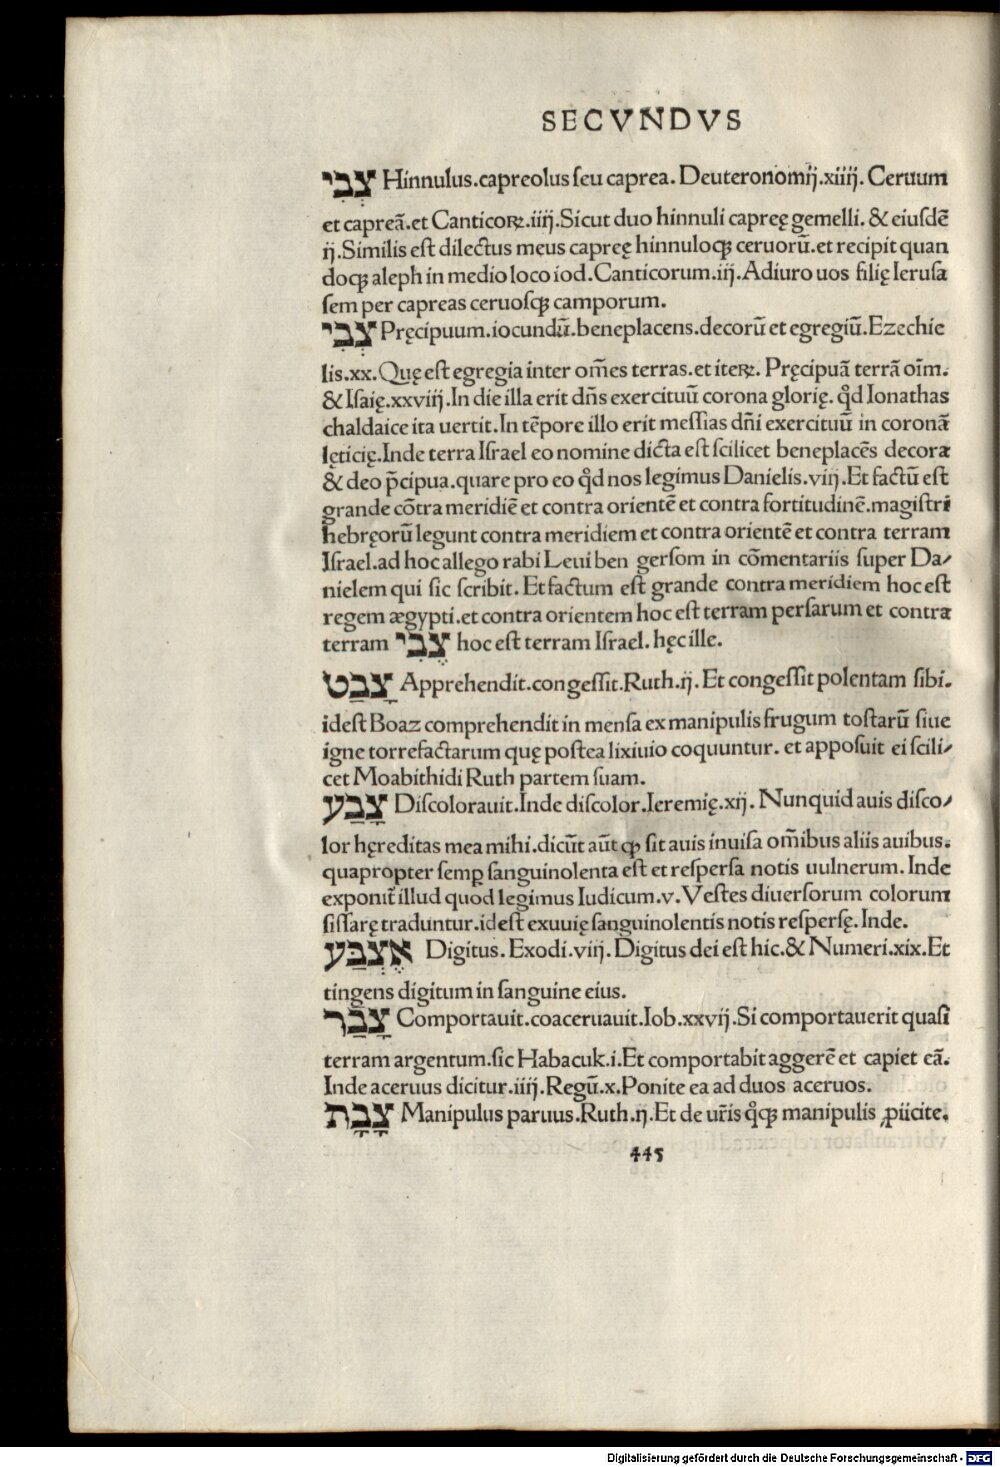 SECVNDVS
צְבִי Hinnulus.capreolus ſeu caprea. Deuteronomij.xiiij. Ceruum
et capreã.et Canticoꝝ.iiij.Sicut duo hinnuli capreę gemelli. & eiuſdẽ
ij.Similis eſt dilectus meus capreę hinnuloqꝫ ceruorũ.et recipit quan
doqꝫ aleph in medio loco iod.Canticorum.iij.Adiuro uos filię Ieruſa
ſem per capreas ceruoſqꝫ camporum.
צְבִי Pręcipuum.iocundũ.beneplacens.decorũ et egregiũ.Ezechie
lis.xx.Quę eſt egregia inter om̃es terras.et iteꝝ. Pręcipuã terrã oĩm.
& Iſaię.xxviij.In die illa erit dñs exercituũ corona glorię. qd̃ Ionathas
chaldaice ita uertit.In tẽpore illo erit meſſias dñi exercituũ in coronã
lęticię.Inde terra Iſrael eo nomine dicta eſt ſcilicet beneplacẽs decora
& deo p̃cipua.quare pro eo qd̃ nos legimus Danielis.viij.Et factũ eſt
grande cõtra meridiẽ et contra orientẽ et contra fortitudinẽ.magiſtri
hebręorũ legunt contra meridiem et contra orientẽ et contra terram
Iſrael.ad hoc allego rabi Leui ben gerſom in cõmentariis ſuper Da/
nielem qui ſic ſcribit. Et factum eſt grande contra meridiem hoc eſt
regem ægypti.et contra orientem hoc eſt terram perſarum et contra
terram צֶבִי hoc eſt terram Iſrael. hęc ille.
צָבַט Apprehendit.congeſſit.Ruth.ij. Et congeſſit polentam ſibi.
ideſt Boaz comprehendit in menſa ex manipulis frugum toſtarũ ſiue
igne torrefactarum quę poſtea lixiuio coquuntur. et appoſuit ei ſcili/
cet Moabithidi Ruth partem ſuam.
צָבַע Diſcolorauit.Inde diſcolor.Ieremię.xij. Nunquid auis diſco/
lor hęreditas mea mihi.dicũt aũt ꝙ ſit auis inuiſa om̃ibus aliis auibus.
quapropter ſemꝑ ſanguinolenta eſt et reſperſa notis uulnerum. Inde
exponit̃ illud quod legimus Iudicum.v.Veſtes diuerſorum colorum
ſiſſarę traduntur.ideſt exuuię ſanguinolentis notis reſperſę. Inde.
אֶצְבַּע Digitus. Exodi.viij. Digitus dei eſt hic.& Numeri.xix.Et
tingens digitum in ſanguine eius.
צָבַר Comportauit.coaceruauit.Iob.xxvij.Si comportauerit quaſi
terram argentum.ſic Habacuk.i.Et comportabit aggerẽ et capiet eã.
Inde aceruus dicitur.iiij.Regũ.x.Ponite ea ad duos aceruos.
צָבָת Manipulus paruus.Ruth.ij.Et de ur̃is qͦqꝫ manipulis ꝓiicite.
445
Digitalisierung gefördert durch die Deutsche Forschungsgemeinschaft - DFG